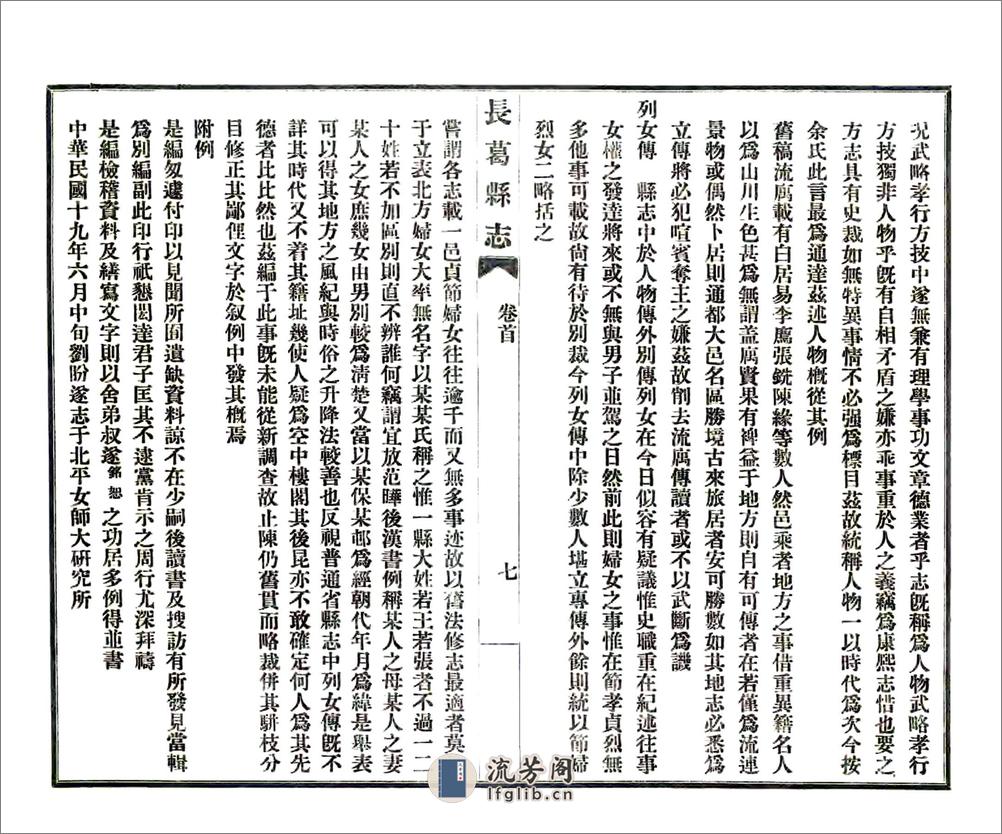 況武略孝行方技中遂無兼有理學事功文章德業者乎志旣稱爲人物武略孝行
方技獨非人物乎旣有自相矛盾之嫌亦乖事重於人之義竊爲康熙志惜也要之
方志具有史裁如無特異事情不必强爲標目茲故統稱人物一以時代爲次今按
余氏此言最爲通達茲述人物概從其例
舊稿流寓載有白居易李廌張銑陳緣等數人然邑乘者地方之事借重異籍名人
以爲山川生色甚爲無謂盖寓賢果有裨益于地方則自有可傳者在若僅爲流連
景物或偶然卜居則通都大邑名區勝境古來旅居者安可勝數如其地志必悉爲
立傳將必犯喧賓奪主之嫌茲故削去流寓傳讀者或不以武斷爲譏
列女傳　縣志中於人物傳外別傳列女在今日似容有疑議惟史職重在紀述往事
女權之發達將來或不無與男子並駕之日然前此則婦女之事惟在節孝貞烈無
多他事可載故尙有待於別裁今列女傳中除少數人堪立專傳外餘則統以節婦
烈女二略括之
長葛縣志
卷首
七
嘗謂各志載一邑貞節婦女往往逾千而又無多事迹故以舊法修志最適者莫
于立表北方婦女大率無名字以某某氏稱之惟一縣大姓若王若張者不過一二
十姓若不加區別則直不辨誰何竊謂宜放范曄後漢書例稱某人之母某人之妻
某人之女庶幾女由男別較爲清楚又當以某保某邨爲經朝代年月爲緯是舉表
可以得其地方之風紀與時俗之升降法較善也反視普通省縣志中列女傳旣不
詳其時代又不着其籍址幾使人疑爲空中樓閣其後昆亦不敢確定何人爲其先
德者比比然也茲編于此事旣未能從新調查故止陳仍舊貫而略裁併其駢枝分
目修正其鄙俚文字於叙例中發其概焉
附例
是編匆遽付印以見聞所囿遺缺資料諒不在少嗣後讀書及搜訪有所發見當輯
爲別編副此印行祇懇閎達君子匡其不逮黨肯示之周行尤深拜禱
是編檢稽資料及繕寫文字則以舍弟叔遂銘恕之功居多例得並書
中華民國十九年六月中旬劉盼遂志于北平女師大硏究所
流芳阁
lfglib.cn